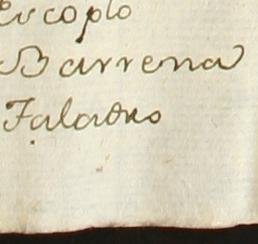 Escoplo
Barrena
Taladro